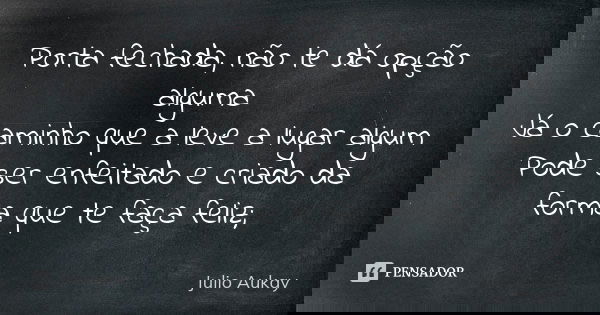 Porta fechada, não te dá opção
alguma
Já o caminho que a leve a lugar algum
Pode ser enfeitado e criado da
forma que te faça feliz;
Julio Aukay
PENSADOR